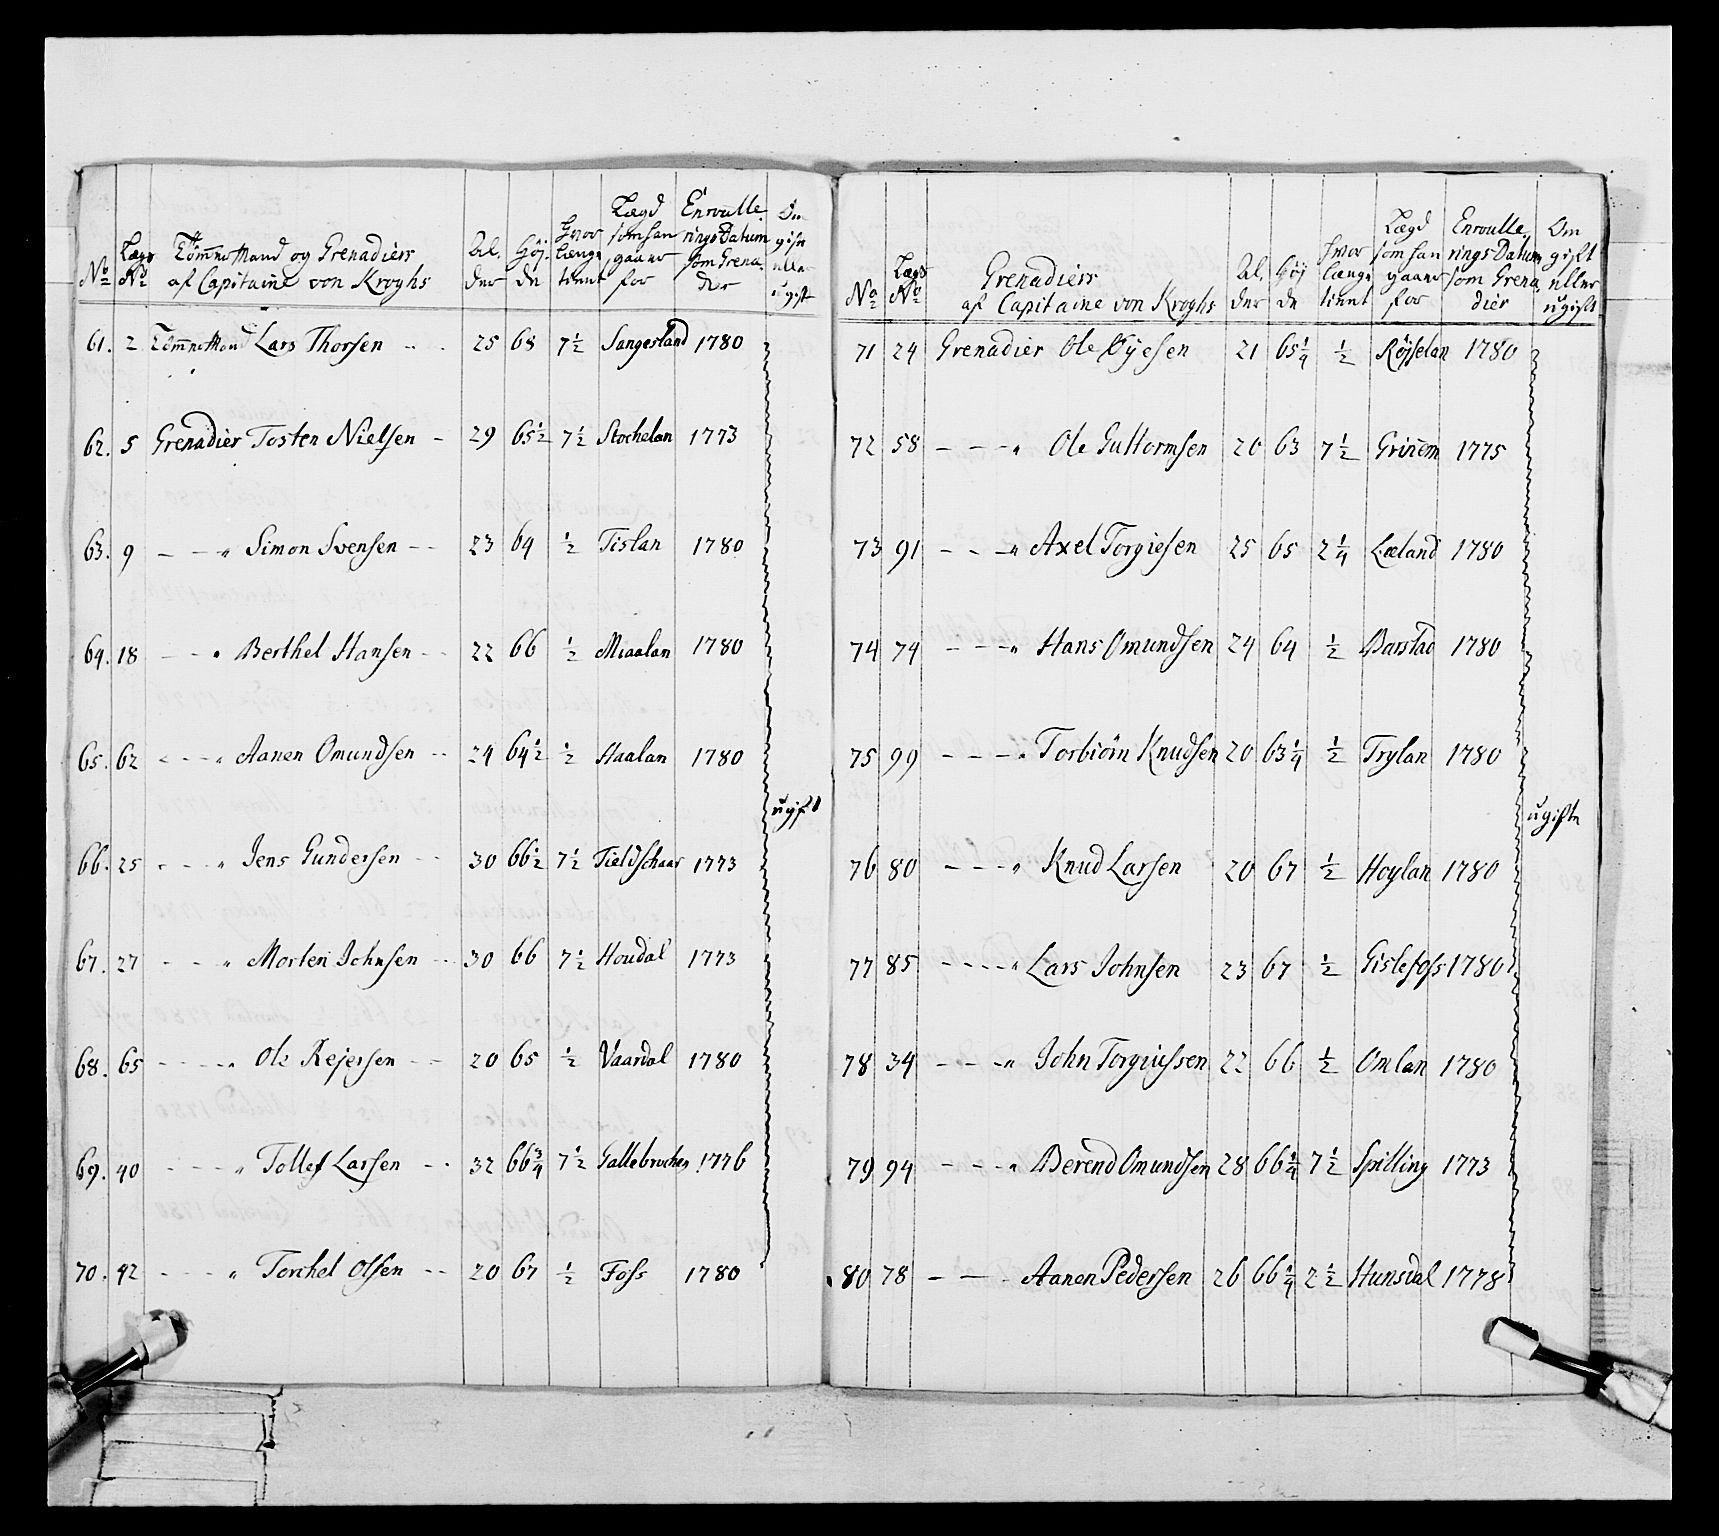 No
Lægs No
Tømmermand og Grenadierr
af Capitaine von Kroghs
Al. der
Höj. de
hvor længe tient
Lægd som han gaaer for
Enroulle. rings Datum som Grena. dier
Om gift eller ugift
61. 2 Tømmermand Lars Thorsen 25 68 7½ Sangesland 1780
62. 5 Grenadier Tosten Nielsen 29 65½ 7½ Stochelan 1773
63. 9 — — " Simon Svensen 23 64 ½ Tislan 1780
64. 18 — — " Berthel Hansen 22 66 ½ Miaalan 1780
65. 62 — — " Aanen Omundsen 24 64½ ½ Haalan 1780
ugift
66. 25 — — " Jens Gundersen 30 66½ 7½ Tieldschaar 1773
67. 27 — — " Morten Johnsen 30 66 7½ Houdal 1773
68. 65 — — " Ole Rejersen 20 65 ½ Vaardal 1780
69. 40 — — " Tollef Larsen 32 66¾ 7½ Gallebrochen 1776
70. 42 — — " Torchel Olsen 20 67 ½ Foss 1780
No
Lægs No
Grenadierr
af Capitaine von Kroghs
Al. der
Höj de
hvor længe tient
Lægd som han gaaer for
Enroulle. rings Datum som Grena. dier
Om gift eller ugift
71 24 Grenadier Ole Øyesen 21 65¼ ½ Röjselan 1780
72 58 — — " Ole Guttormsen 20 63 7½ Griñem 1775
73 91 — — " Axel Torgiesen 25 65 2¼ Læland 1780
74 74 — — " Hans Omundsen 24 64 ½ Barstad 1780
75 99 — — " Torbiörn Knudsen 20 63¼ ½ Trylan 1780
ugifte
76 80 — — " Knud Larsen 20 67 ½ Hoylan 1780
77 85 — — " Lars Johnsen 23 67 ½ Gislefoss 1780
78 34 — — " John Torgiussen 22 66 ½ Omlan 1780
79 94 — — " Berend Omundsen 28 66¼ 7½ Spilling 1773
80 78 — — Aanen Pedersen 26 66¼ 2½ Hunsdal 1778